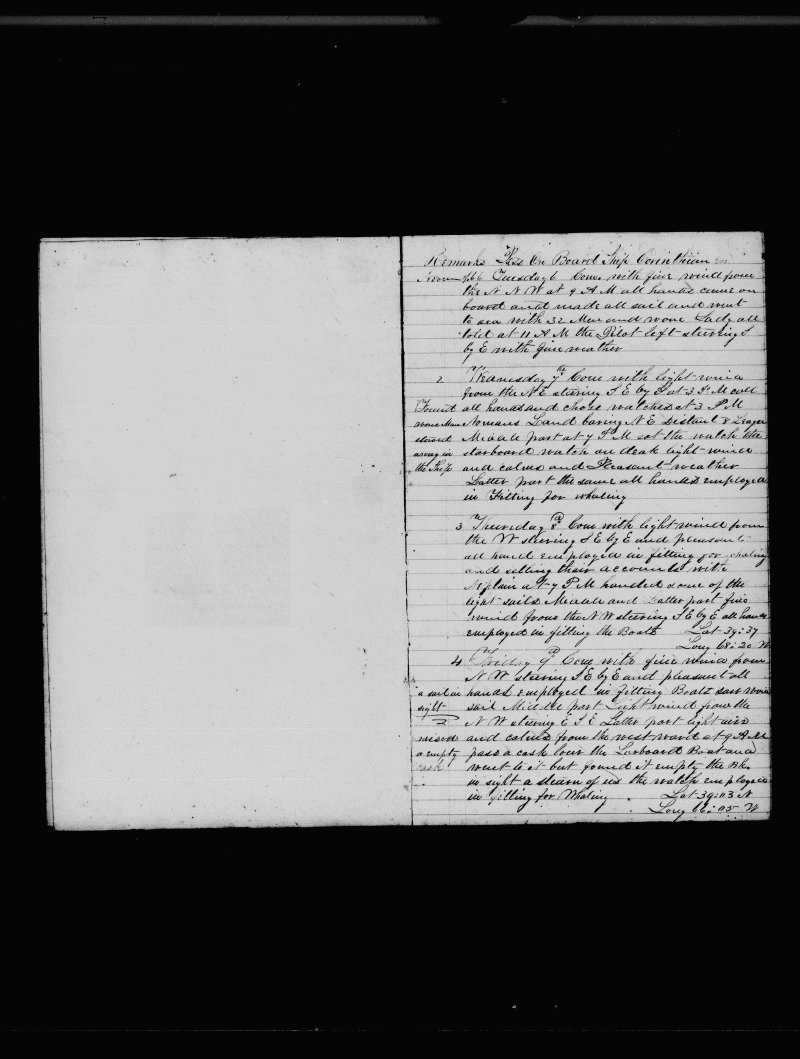 Remarks On Board Ship Corinthian
Novem 1866 Tuesday 6 Com with fine wind from
the N N W at 9 A M all hands came on
board and made all sail and went
to sea with 32 Men and wone Lady all
told at 11 A M the Pilot left steering S
by E with fine weather
2 Wednesday 7th Com with light wind
from the N E steering S E by E at 3 P M call
Found all hands and chose watches at 3 P M
wone Man Nomans Land baring N E Distant 8 Leages
stowed Middle part at 7 P M sot the watch the
away in starboard watch on deak light wind
the Ship and calms and Pleasant weather
Latter part the same all hands employed
in Fitting for whaling
3 Thursday 8 Com with light wind from
the W steering S E by E and pleasant
all hand employed in fitting for whaling
and setling their accounts with
Neptain at 7 P M handed some of the
light sails Middle and Latter part fine
wind from the N W steering S E by E all hands
employed in fitting the Boats Lat 39:37
Long 68:20 W
4 Friday 9 Com with fine wind from
N W steering S E by E and pleasant all
a sail in hands employed in fitting Boats saw wone
sight sail Middle part Light wind from the
N W steering E S E Latter part light airs
raised and calms from the west ward at 9 A M
a empty pass a cask lover the Larboard Boat and
cask went to it but found it empty the
in sight a stearn of us the watch employed
in fitting for Whaling Lat 39:13 N
Long W